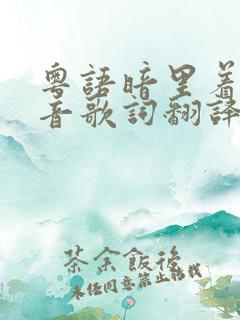 粵語暗里着
音歌詞翻譯
茶余飯後
未经同意禁止转载